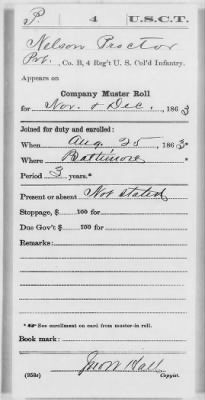 P. 4 U.S.C.T.
Nelson Proctor
Pvt., Co. B, 4 Reg't U. S. Col'd Infantry.
Appears on
Company Muster Roll
for Nov. & Dec., 1863
Joined for duty and enrolled:
When Aug. 25, 1863*
Where Baltimore *
Period 3 years.*
Present or absent Not stated
Stoppage, $ 100 for
Due Gov't $ 100 for
Remarks:
* See enrollment on card from muster-in roll.
Book mark:
Jno W Hall
(358r) Copyist.